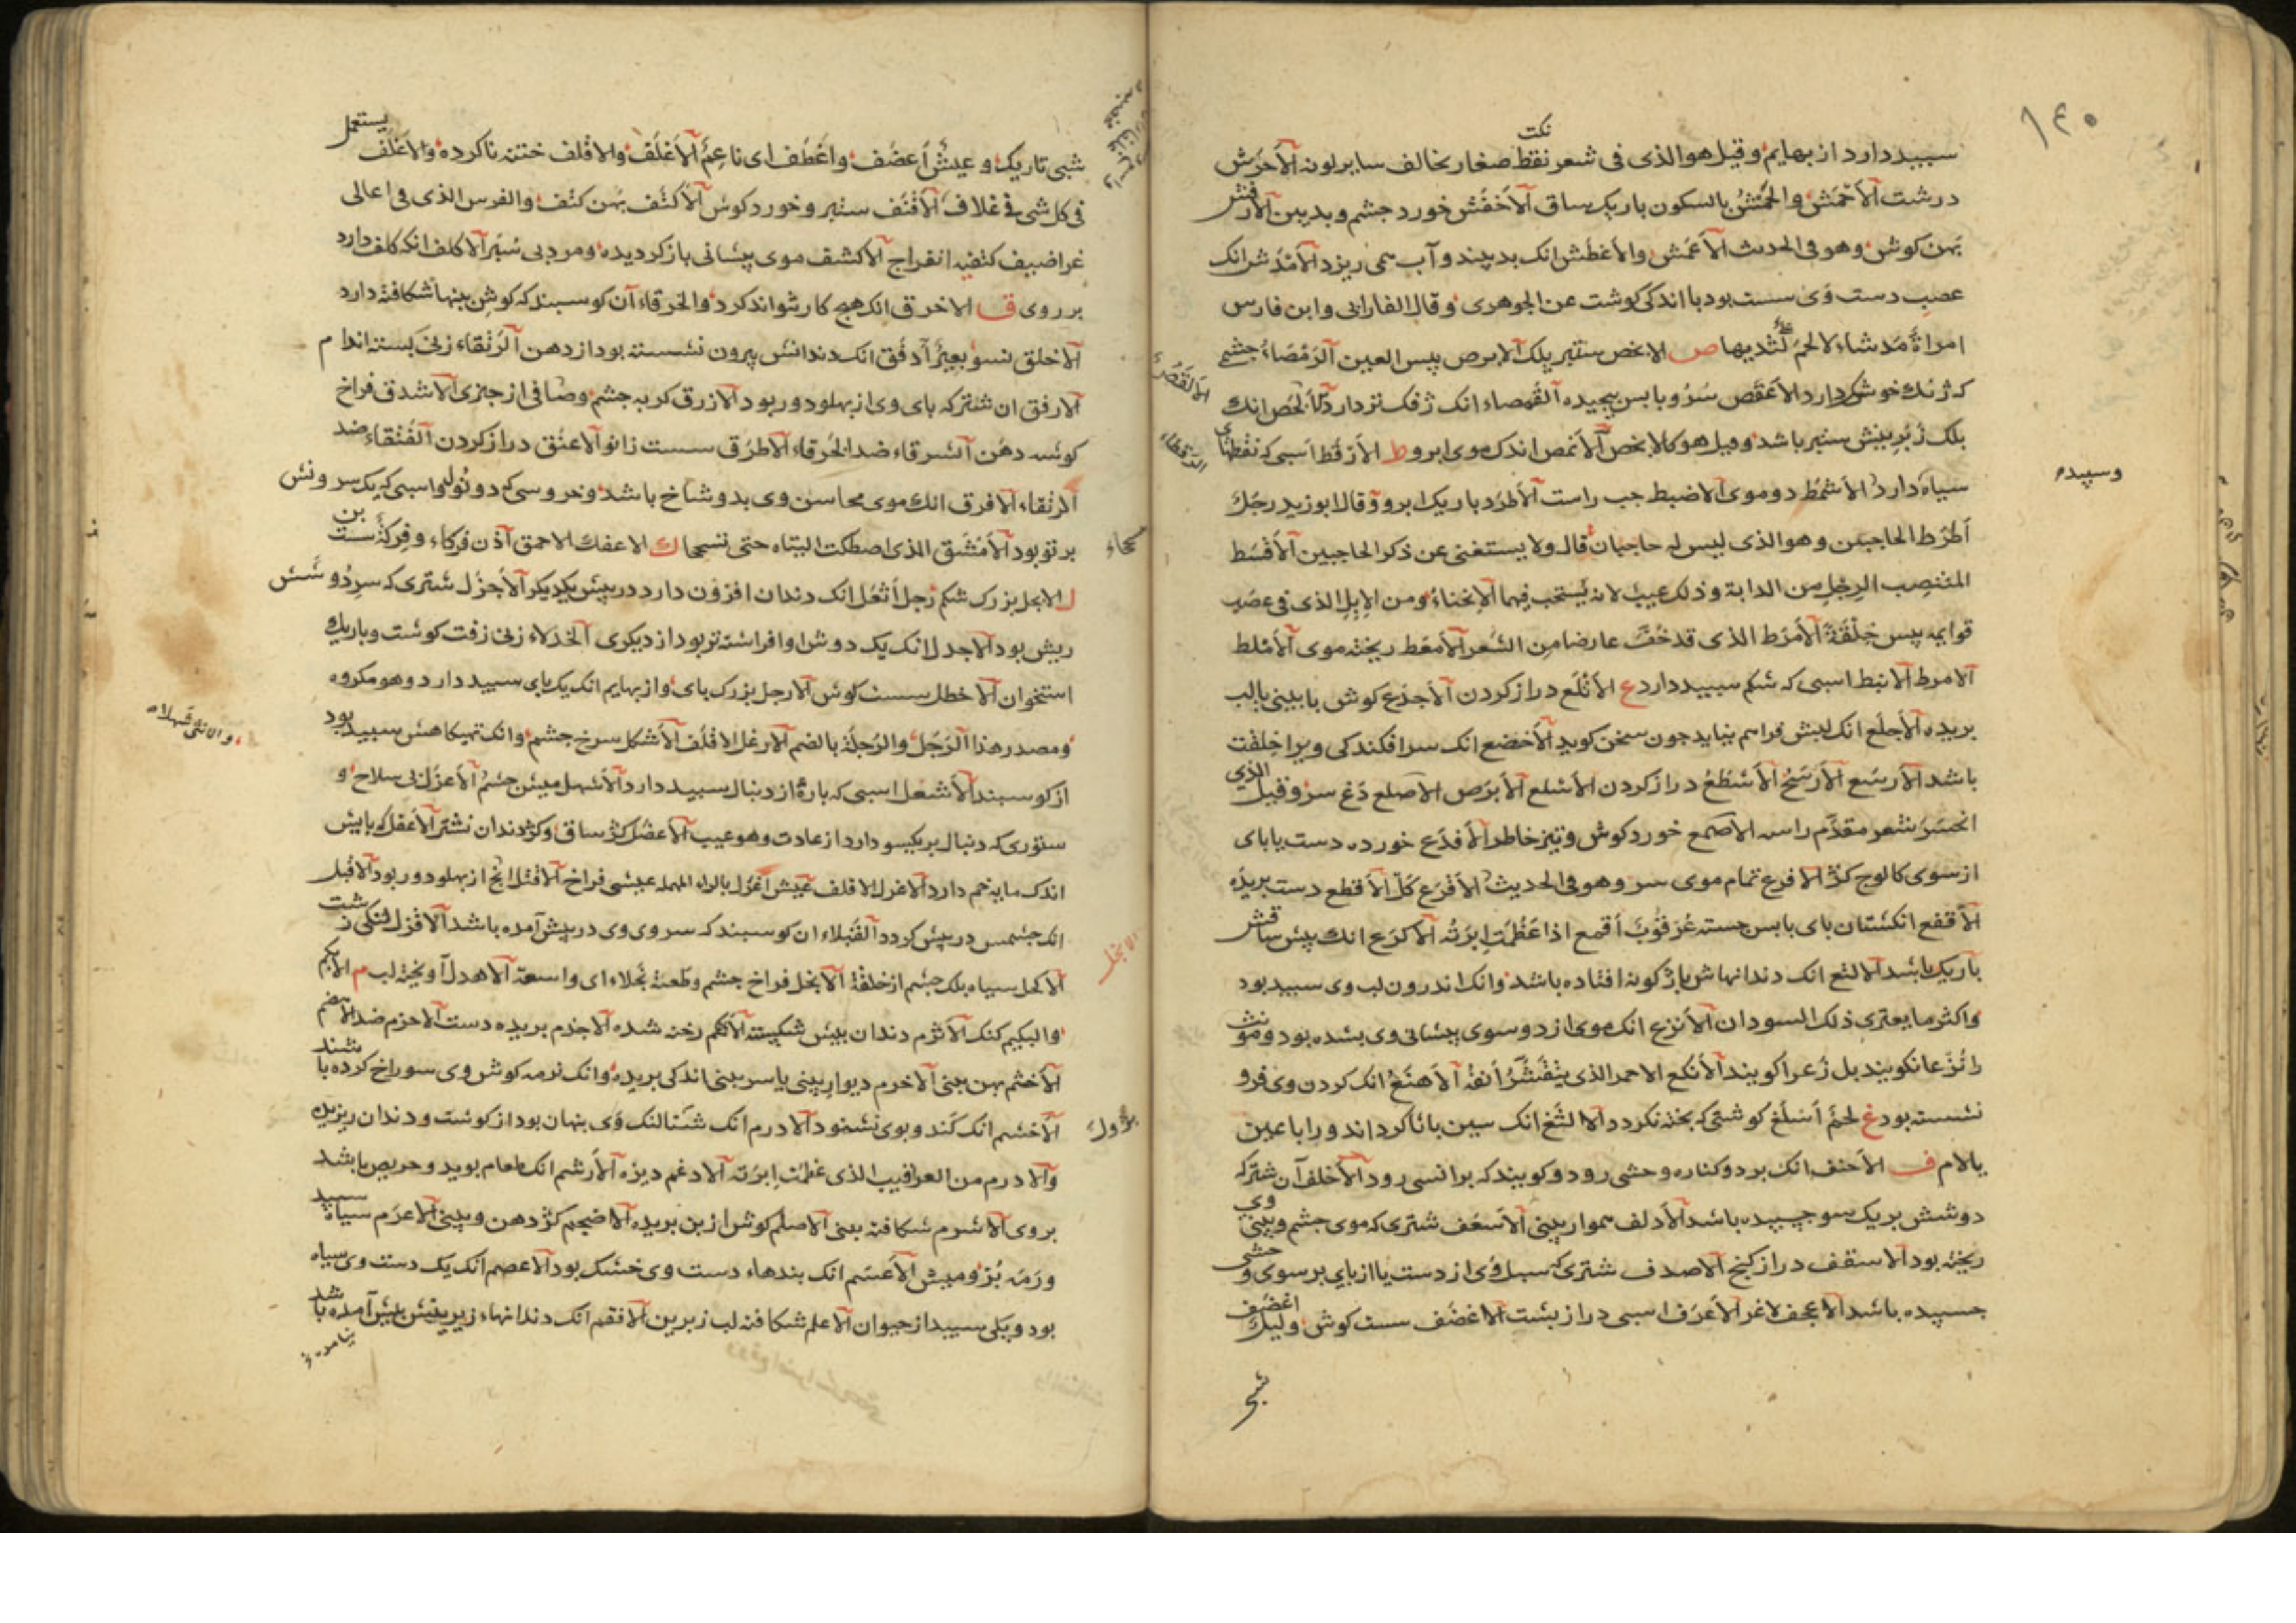 ١٤٠
نكت
سبيد دارد از بهايم وقيل هو الذى فى شعر نقط صغار يخالف ساير لونه الأحرش
درشت الأحمش والحمش بالسكون باريك ساق الأخفش خورد جشم وبد بين الأرفش
پهن كوش وهو فى الحديث الأعمش والأغطش انك بد بيند وآب همى ريزد الأمدش انك
عصب دست وى سست بود با اندكى كوشت عن الجوهرى وقال الفارابى وابن فارس
امراة مدشاء لا لحم على ثدييها ص الابخص ستبر پلك الابرص پيس العين الرمصاء جشمى
كه ژفك خوش دارد الأعقص سرو با پس پيچيده القمصاء انك ژفك تر دارد الألخص انك
الألقص
پلك زبرينش ستبر باشد وقيل هو كالابخص الأنمص اندك موى ابرو ط الأرقط اسبى كه نقطهاى
الرقطاء
سياه دارد الأشمط دو موى الاضبط چپ راست الأطرد باريك ابرو وقال ابو زيد رجل
وسپيده
أطرط الحاجبين وهو الذى ليس له حاجبان قال ولا يستغنى عن ذكر الحاجبين الأقسط
المنتصب الرجل من الدابة وذلك عيب لانه يستحب فيها الإنحناء ومن الإبل الذى فى عصب
قوايمه يبس خلقة الأمرط الذى قد خف عارضا من الشعر الأمعط ريخته موى الأملط
الامرط الانبط اسبى كه شكم سبيد دارد ع الأتلع دراز كردن الأجدع كوش يا بينى يا لب
بريده الأجلع انك لبش فراهم نيايد جون سخن كويد الأخضع انك سرافكندكى ويرا خلقت
باشد الأرسع الأرسح الأسطع دراز كردن الأسلع الأبرص الاصلع دغ سر وقيل الذى
انحسر شعر مقدم راسه الاصمع خورد كوش وتيز خاطر الأفدع خورده دست يا پاى
از سوى كالوج كژ الافرع تمام موى سر وهو فى الحديث الأقرع كل الأقطع دست بريده
الأقفع انكشتان پاى باپس جسته عرقوب أقمع اذا عظمت إبرته الأكرع انك پيش ساقش
باريك باشد الالثع انك دندانهاش باژكونه افتاده باشد وانك اندرون لب وى سبيد بود
واكثر ما يعترى ذلك السودان الأنزع انك موى از دو سوى پيشانى وى بشده بود ومونث
را نزعا نكويند بل زعرا كويند الأنكع الاحمر الذى يتقشر أنفه الأهنع انك كردن وى فرو
نشسته بود غ لحم أسلغ كوشتى كه پخته نكردد الالثغ انك سين با ثا كرداند ورا با غين
يا لام ف الأحنف انك بر دو كناره وحشى رود وكويند كه بر انسى رود الأخلف آن شتر كه
دوشش بر يك سو چسپيده باشد الأدلف هموار بينى الأسعف شترى كه موى جشم وبينى وى
ريخته بود الاسقف دراز كنج الاصدف شترى كه سپل وى از دست يا از پاى بر سوى وحشى
چسپيده باشد الاعجف لاغر الأعرف اسبى دراز بشت الاغضف سست كوش وليل اغضف
شبى
شبى تاريك وعيش أغضف واغطف اى ناعم الأغلف والاقلف ختنه ناكرده والأغلف يستعمل
فى كل شى فى غلاف الأقنف ستبر وخورد كوش الأكتف پهن كتف والفرس الذى فى اعالى
غراضيف كتفيه انفراج الأكشف موى پيشانى باز كرديده ومرد بى سپر الاكلف انك كلف دارد
بر روى ق الاخرق انك هيچ كار نتواند كرد والخرقاء آن كوسبند كه كوش پهنها شكافته دارد
الاخلق نسو بعير أدفق انك دندانش بيرون نشسته بود از دهن الرتقاء زنى بسته اندام
الارفق ان شتر كه پاى وى از پهلو دور بود الازرق كربه جشم وصافى از چيزى الاشدق فراخ
كوشه دهن الشرقاء ضد الخرقاء الأطرق سست زانو الاعنق دراز كردن الفتقاء ضد
الرتقاء الافرق انك موى محاسن وى بدو شاخ باشد وخروسى كه دو تو اسبى كه يك سرونش
بر تو بود الأمشق الذى اصطكت اليتاه حتى تنسحجا ك الاعفك الاحمق أذن فركاء وفركة سست بن
ل الابجل بزرك شكم رجل أثعل انك دندان افزون دارد در پيش يكديكر الأجزل شترى كه سر دوشش
ريش بود الاجدل انك يك دوش او افراشته تر بود از ديكرى الخدلاء زنى زفت كوشت وباريك
استخوان الاخطل سست كوش الارجل بزرك پاى واز بهايم انك يك پاى سبيد دارد وهو مكروه
ومصدر هذا الرجل والرجلة بالضم الارغل الاقلف الأشكل سرخ جشم وانك تهيكاهش سبيد بود
والانثى شهلاء
از كوسبند الأشعل اسبى كه پارۀ از دنبال سبيد دارد الأشهل ميش جشم الأعزل بى سلاح و
ستورى كه دنبال بر يكسو دارد از عادت وهو عيب الأعصل كژ ساق وكژ دندان نشتر الأعقل كه پايش
اندك مايه خم دارد الاغرل الاقلف عيش أغرل بالراء المهملة عيشى فراخ الافتل انج از پهلو دور بود الاقبل
انك جشمش در پيش كردد القبلاء ان كوسبند كه سروى وى در پيش آمده باشد الاقزل لنكى زشت
الاكحل سياه پلك جشم از خلقة الانجل فراخ جشم وطعنة نجلاء اى واسعة الأهدل آويخته لب م الأبكم
الانجل
والبكيم كنك الأثرم دندان پيش شكسته الأثلم رخنه شده الاجذم بريده دست الأحزم ضد الأهضم
الأخثم پهن بينى الاخرم ديوار بينى يا سر بينى اندكى بريده وانك نرمه كوش وى سوراخ كرده باشند
الأخشم انك كند وبوى نشنود الادرم انك شتالنك وى پنهان بود از كوشت ودندان ريزيده
والادرم من العراقيب الذى عظمت إبرته الادغم ديزه الأرشم انك طعام بويد وحريص باشد
بر وى الأشرم شكافته بينى الاصلم كوش از بن بريده الاضجم كژ دهن وبينى الاعرم سياه سبيد
ورمه بز وميش الأعسم انك بندهاء دست وى خشك بود الاعصم انك يك دست وى سياه
بود ويكى سبيد از حيوان الاعلم شكافته لب زبرين الافقم انك دندانهاء زيرينش پيش آمده باشد